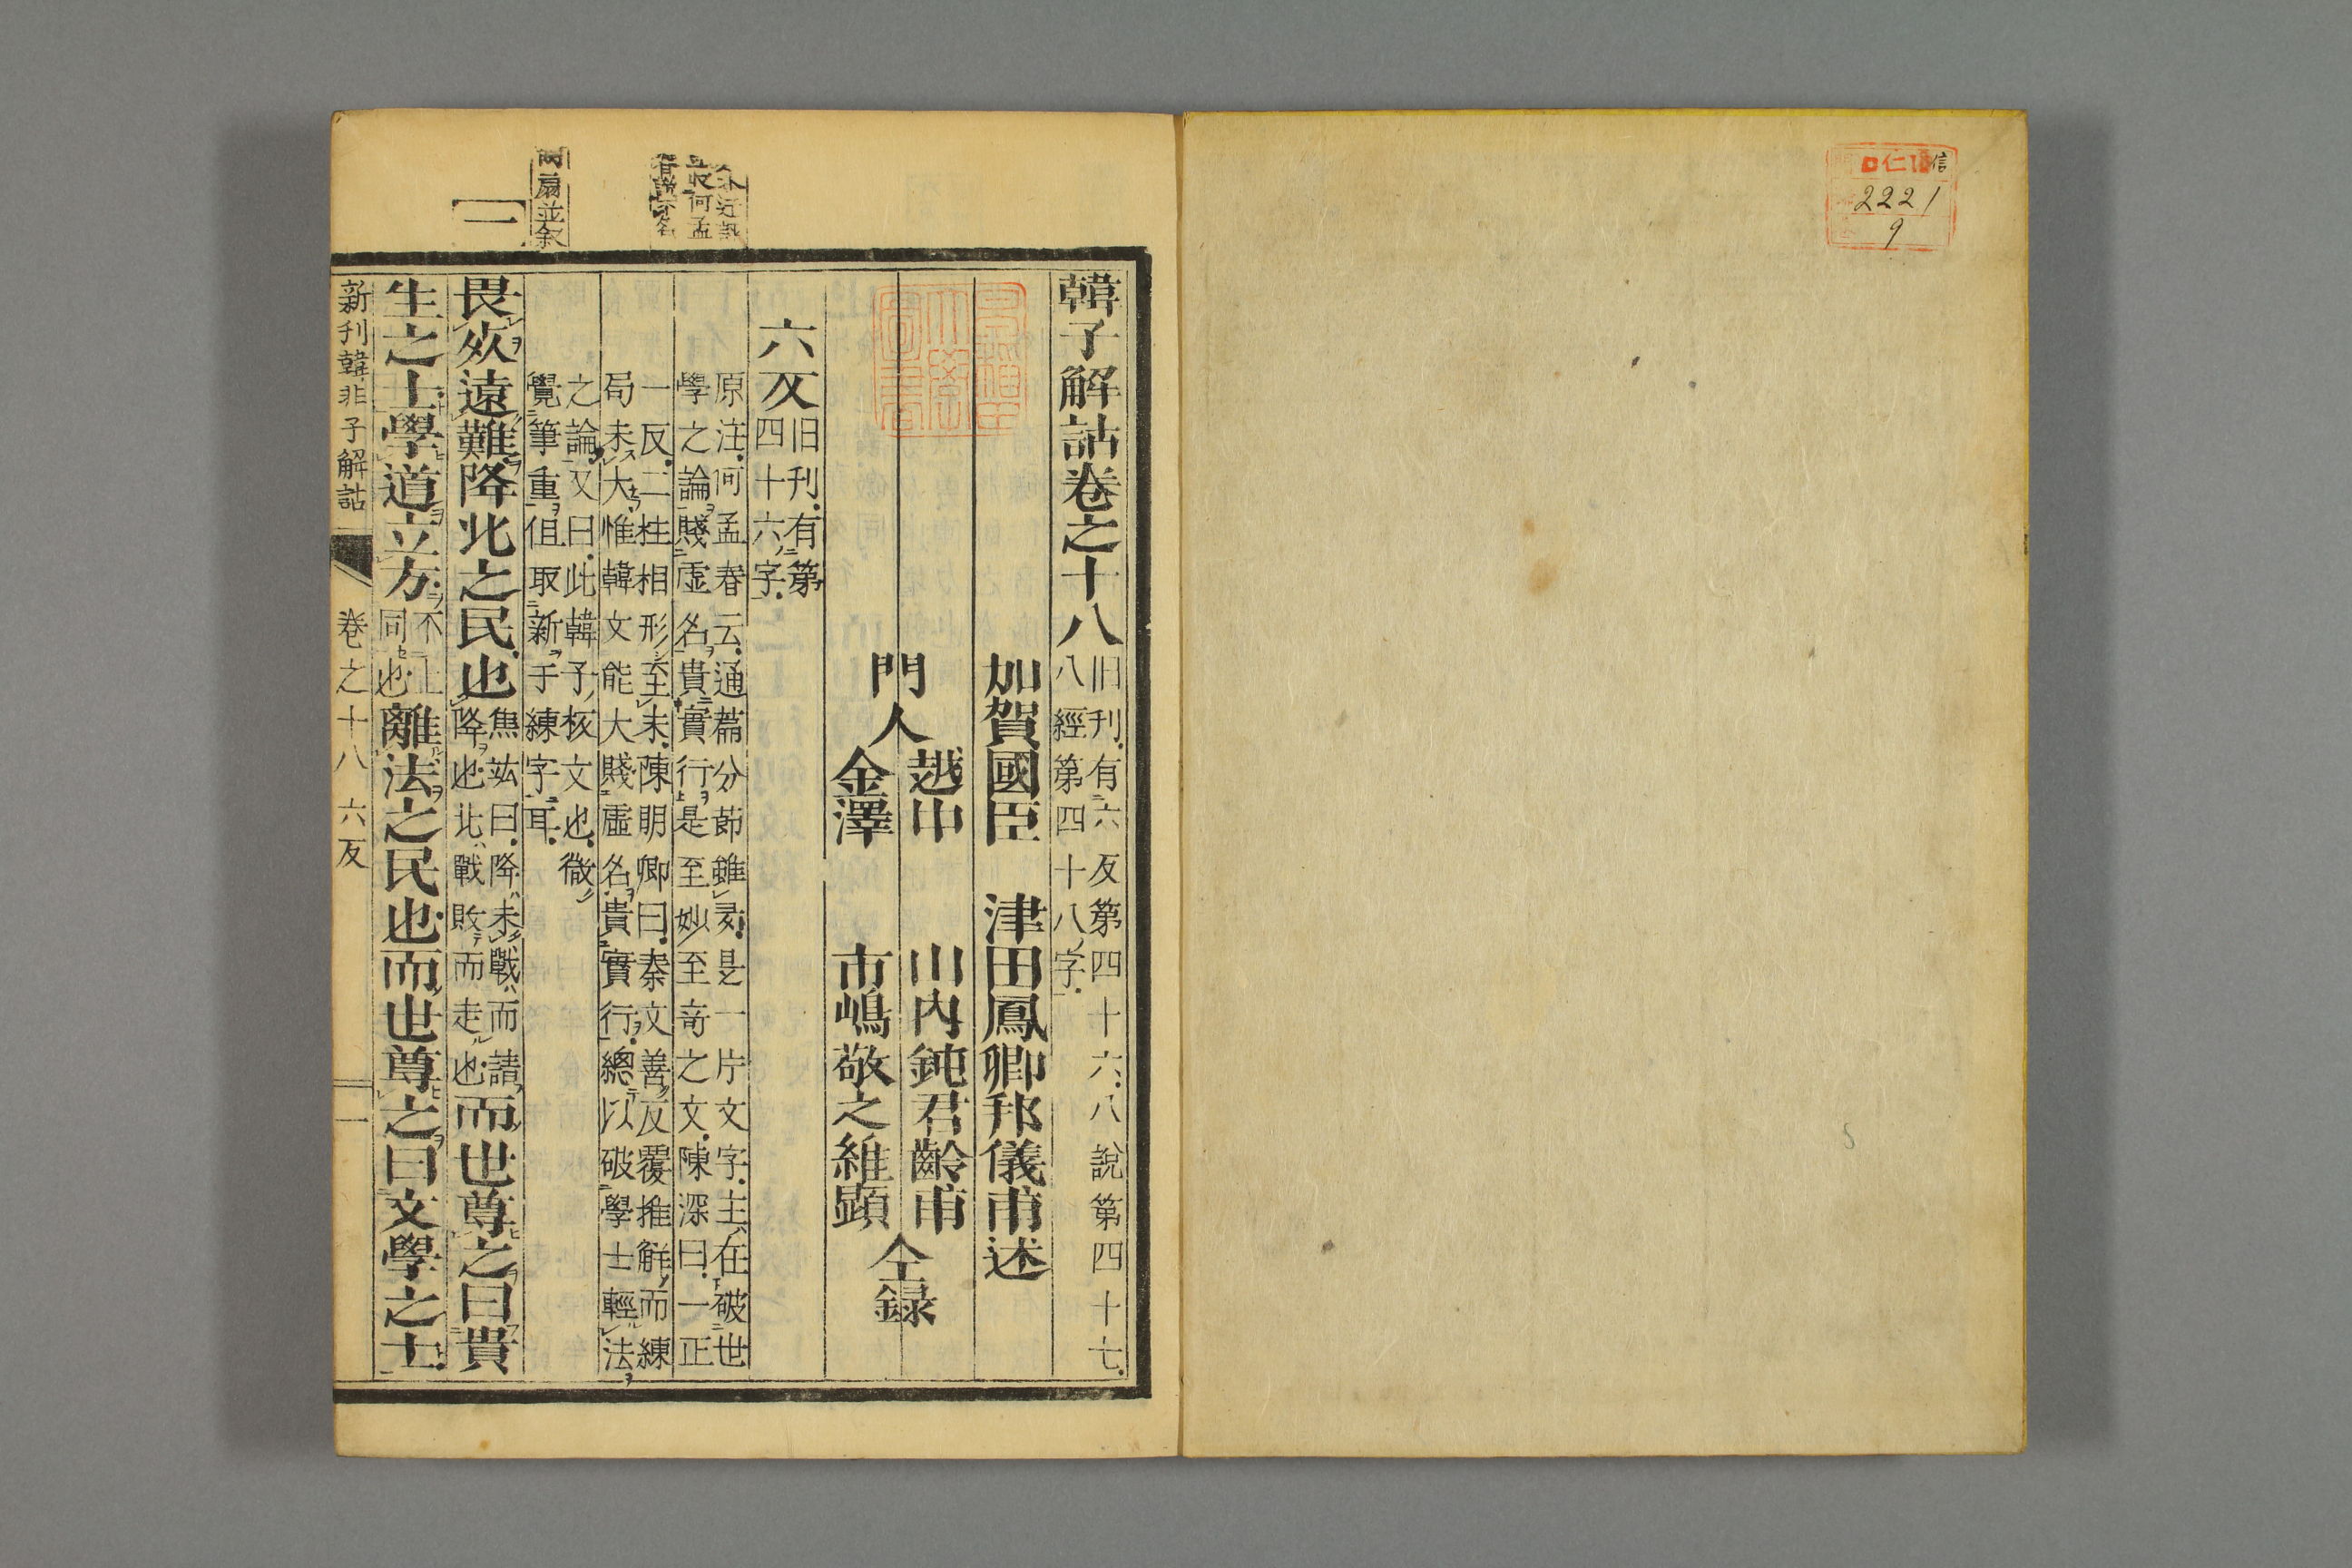 仁18信
2221
9
韓子解詁卷之十八
旧刋有六反第四十六八說第四十七
八經第四十八字
加賀國臣 津田鳳卿邦儀甫述
門人
越中 山內鈍君齡甫
金澤 市嶋敬之維顕
仝録
六反
旧刋有第
四十六字
原注何孟春云通篇分節雖多是一片文字主在破世
學之論賤虛名貴實行是至妙至竒之文陳深曰一正
一反二柱相形至末陳明卿曰秦文善反覆推觧而練
局未大惟韓文能大賤虛名貴實行總以破學士輕法
之論又曰此韓子核文也微
覺筆重但取新于練字耳
畏死遠難降北之民也
焦竑曰降未戰而請
降也北戰敗而走也
而世尊之曰貴
生之士學道立方
不止
同也
離法之民也而世尊之曰文學之士
新刋韓非子解詁 卷之十八 六反 一
何孟
扇並余
一